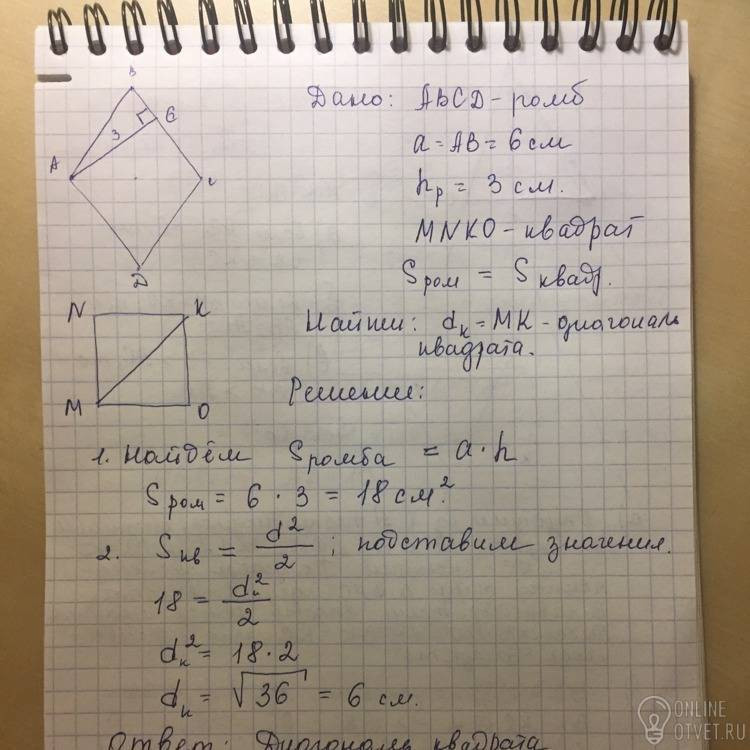 B
E
3
A
C
D
N K
M O
Дано: ABCD - ромб
a = AB = 6 см
hр = 3 см.
MNKO - квадрат
Sром = Sквадр.
Найти: dк = MK - диагональ
квадрата.
Решение:
1. Найдём Sромба = a · h
Sром = 6 · 3 = 18 см².
2. Sкв = d²/2 ; подставим значения.
18 = dк²/2
dк² = 18 · 2
dк = √36 = 6 см.
Ответ: Диагональ квадрата
ONLINE
OTVET.RU